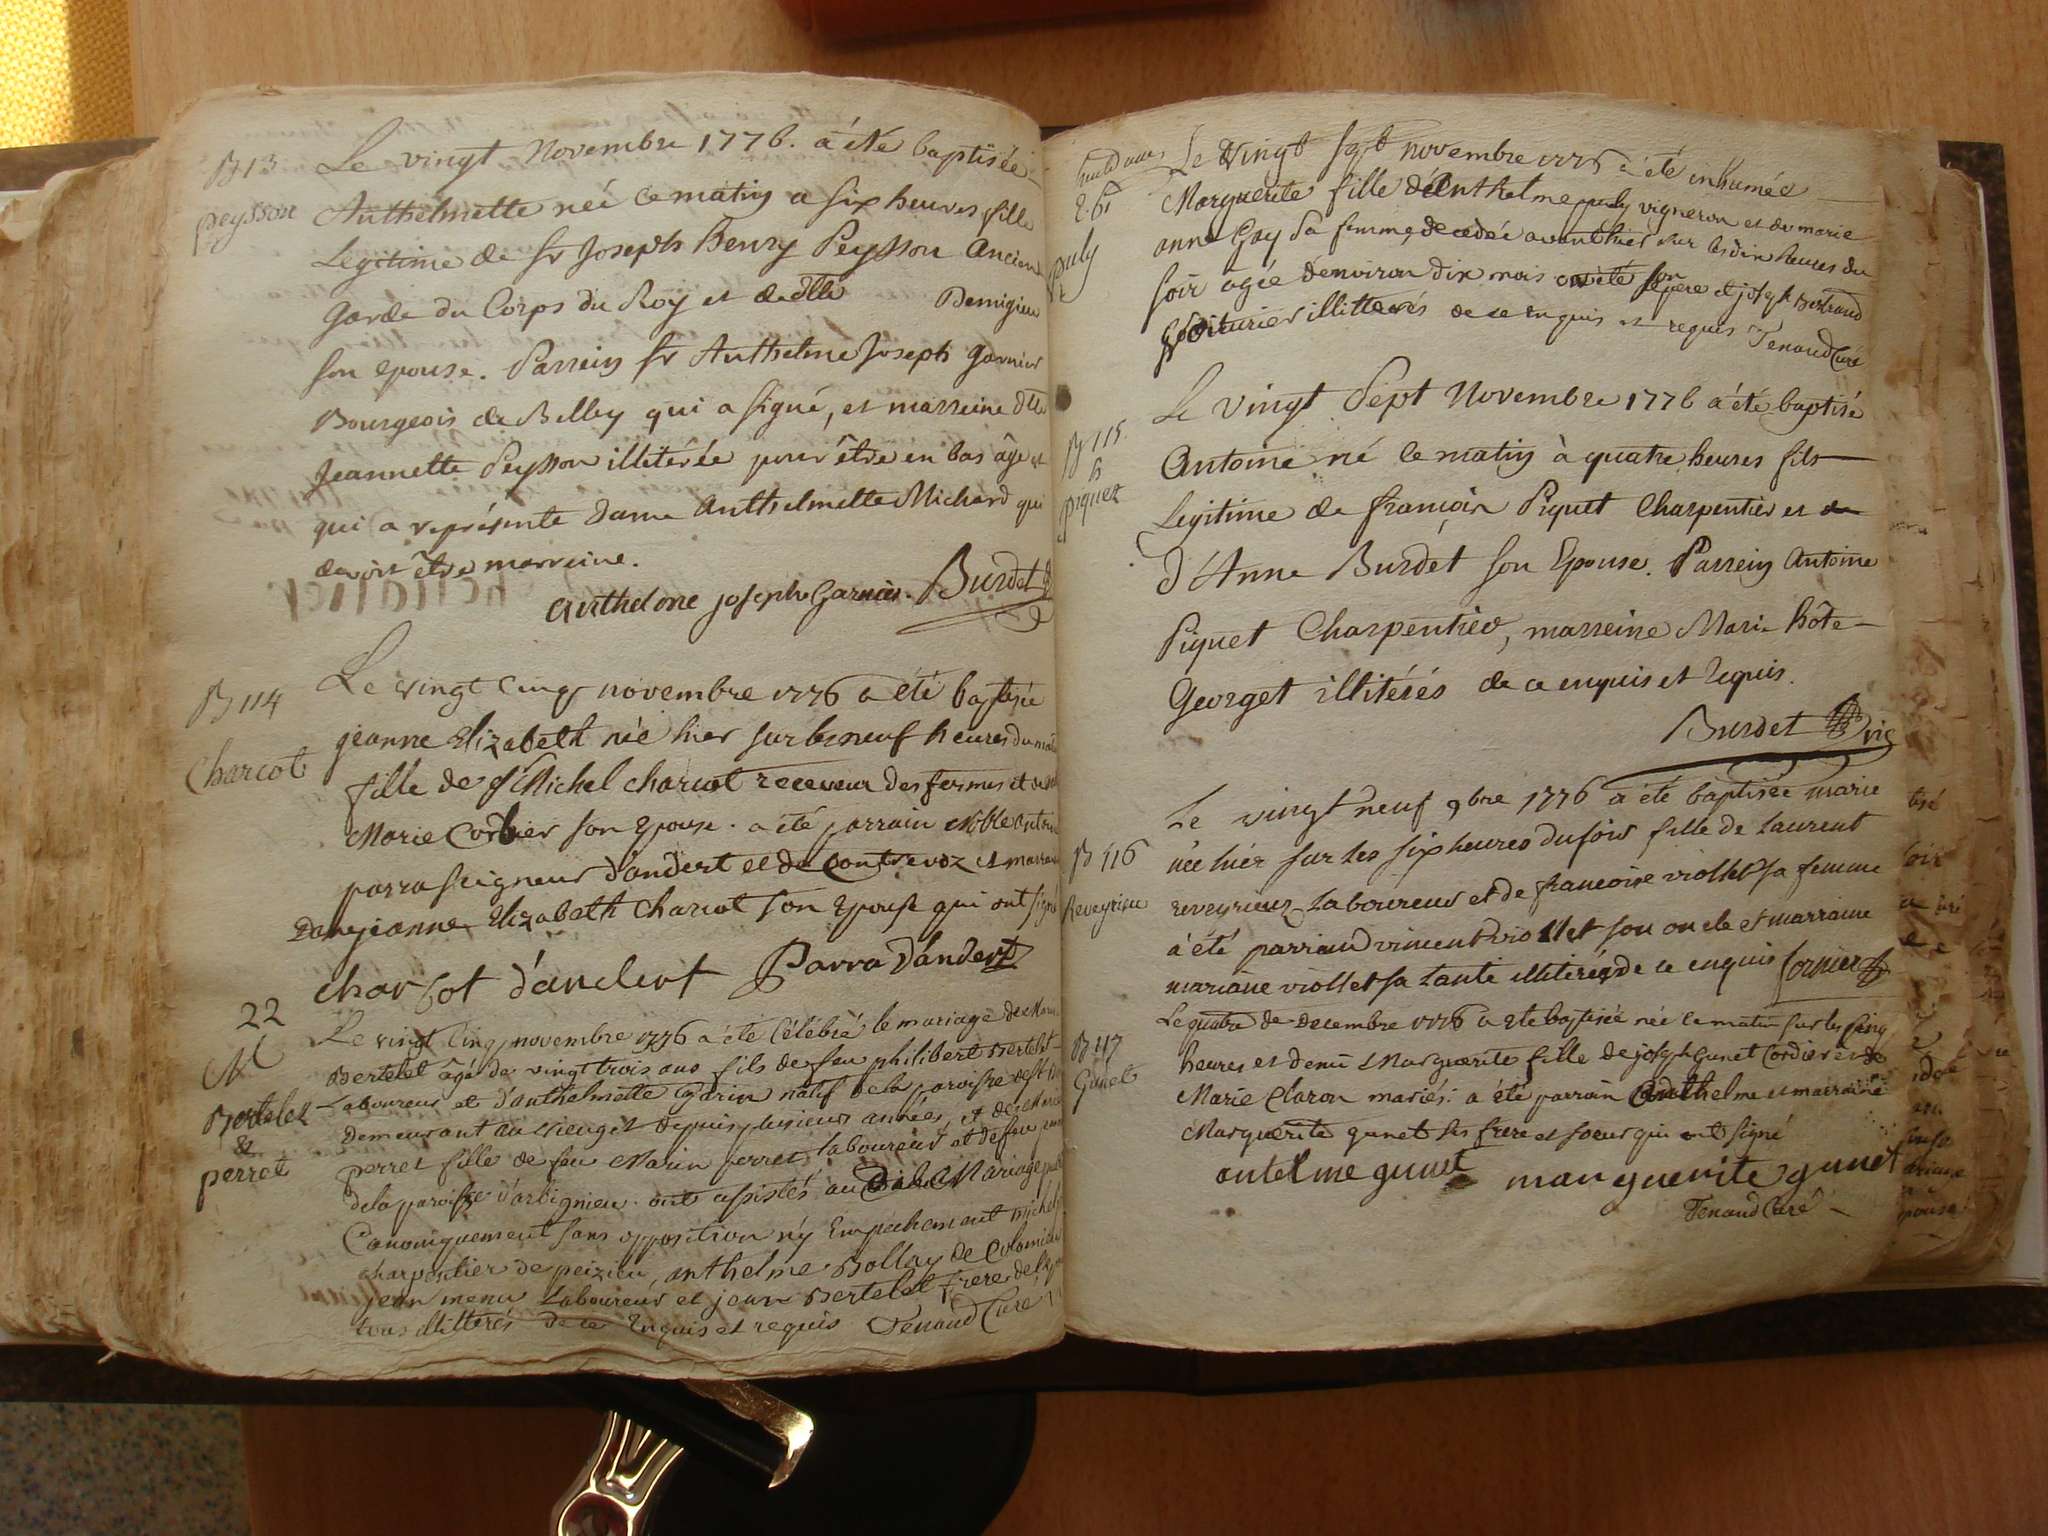 B 13
peysson
Le vingt Novembre 1776. a été baptisée
Anthelmette née ce matin a six heures fille
Legitime de Sr Joseph Henry Peysson Ancien
Garde du Corps du Roy et de dlle Demigieu
son epouse. Parrein Sr Anthelme Joseph Garnier
Bourgeois de Belley qui a signé, et marreine dlle
Jeannette Peysson illitérée pour être en bas âge et
qui a représenté dame Anthelmette Michard qui
devoit être marreine.
anthelme joseph Garnier. Burdet
B 114
Charcot
Le vingt cinq novembre 1776 a été baptisée
jeanne Elizabeth née hier sur les neuf heures du matin
fille de Sr Michel charcot receveur des fermes et de
Marie Corbier son epouse. a été parrain Noble antoine
parra seigneur d'andert et de Contrevoz et marraine
Dame jeanne Elizabeth Charcot son Epouse qui ont signé
charcot d'andert Parra D'andert
22
M
Bertelet
&
perret
Le vingt cinq novembre 1776 a été célébré le mariage de
Bertelet âgé de vingt trois ans fils de feu philibert Bertelet
Laboureur et d'anthelmette Garin natif de la paroisse de St
demeurant au vieuget depuis plusieurs années, et de
perret fille de feu Marin perret laboureur et de feu
de la paroisse d'arbignieu. ont assistés au Dit Mariage
Canoniquement sans opposition ny Empechement michel
charpentier de peizieu, anthelme Bollay de Colomieu
jean menu Laboureur et jean Bertelet frere de
tous illitterés de ce Enquis et requis Tenaud Curé
puly
Le Vingt sept novembre 1776 a été inhumée
Marguerite fille d'Anthelme puly vigneron et de marie
anne Gay sa femme, decedée avant hier sur les dix heures du
soir agée d'environ dix mois son pere et joseph Bertrand
illitterés de ce enquis et requis Tenaud Curé
B 115.
piquet
Le vingt Sept Novembre 1776 a été baptisé
Antoine né ce matin à quatre heures fils
Legitime de françois Piquet Charpentier et
d'Anne Burdet son Epouse. Parrein Antoine
Piquet Charpentier, marreine Marie hôte
Georget illitérés de ce enquis et requis.
Burdet vic
B 116
Reveyrieu
Le vingt neuf 9bre 1776 a été baptisée marie
née hier sur les six heures du soir fille de Laurent
reveyrieux Laboureur et de francoise viollet sa femme
à été parrain vincent viollet son oncle et marraine
mariane viollet sa tante illitérés de ce enquis Cornier
B 117
Gunet
Le quatre de decembre 1776 a été baptisée née ce matin sur les cinq
heures et demi Marguerite fille de joseph Gunet Cordier et de
Marie Claron mariés: a été parrain Anthelme et marraine
Marguerite gunet ses frere et soeur qui ont signé
antelme gunet marguerite gunet
Tenaud Curé